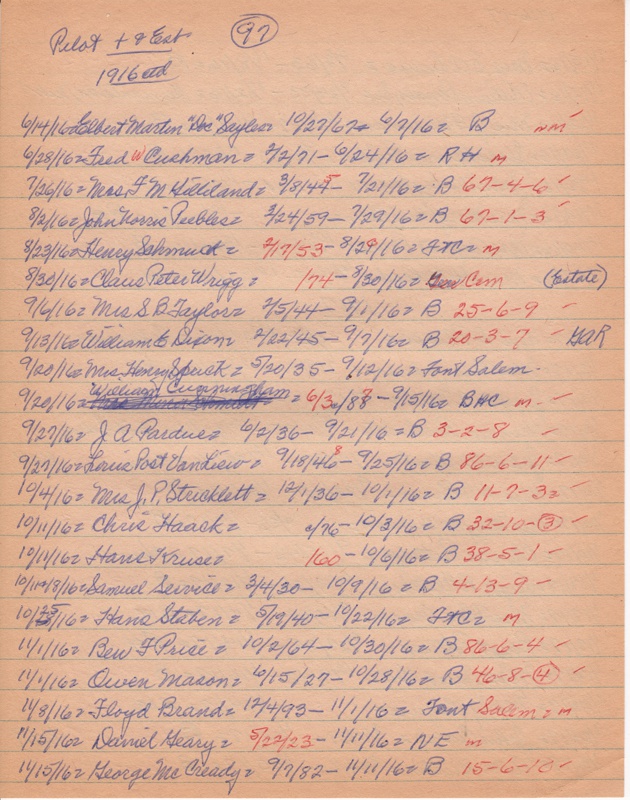 Pilot + & Extr 97
1916 ctd
6/14/16= Elbert Martin "Doc" Saylor= 10/27/67= 6/7/16= B mm
6/28/16= Fred W Cushman= 2/2/71- 6/24/16= R H m
7/26/16= Mrs. F M Hilliland= 3/8/45- 7/21/16= B 67-4-6
8/2/16= John Norris Peebles= 2/24/59- 7/29/16= B 67-1-3
8/23/16= Henry Schmuck= 2/17/53- 8/29/16= Ftc= m
8/30/16= Claus Peter Wrigg= /74- 8/30/16= Cem (Estate)
9/6/16= Mrs S B Taylor= 2/5/44- 9/1/16= B 25-6-9
9/13/16= William E Dixon= 2/22/45- 9/7/16= B 20-3-7 GAR
9/20/16= Mrs. Henry Spuck= 5/20/35- 9/12/16= Font Salem.
9/20/16= William Cunningham = 6/3/87- 9/15/16= BHC m
9/27/16= J A Pardue= 6/2/36- 9/21/16= B 3-2-8
9/27/16= Louis Post Van Liew= 9/18/48- 9/25/16= B 86-6-11
10/4/16= Mrs J. P. Stricklett= 12/1/36- 10/1/16= B 11-7-3=
10/11/16= Chris Haack= c/76- 10/3/16= B 32-10-3
10/11/16= Hans Kruse= /60- 10/6/16= B 38-5-1
10/11+18/16= Samuel Service= 3/4/30- 10/9/16= B 4-13-9
10/25/16= Hans Staben= 5/19/40- 10/22/16= Ftc= m
11/1/16= Benj F Price= 10/2/64- 10/30/16= B 86-6-4
11/1/16= Owen Mason= 6/15/27- 10/28/16= B 46-8-4
11/8/16= Floyd Brand= 12/4/93- 11/1/16= Font Salem= m
11/15/16= Daniel Geary= 5/22/23- 11/11/16= NE m
11/15/16= George McCready= 9/7/82- 11/11/16= B 15-6-10